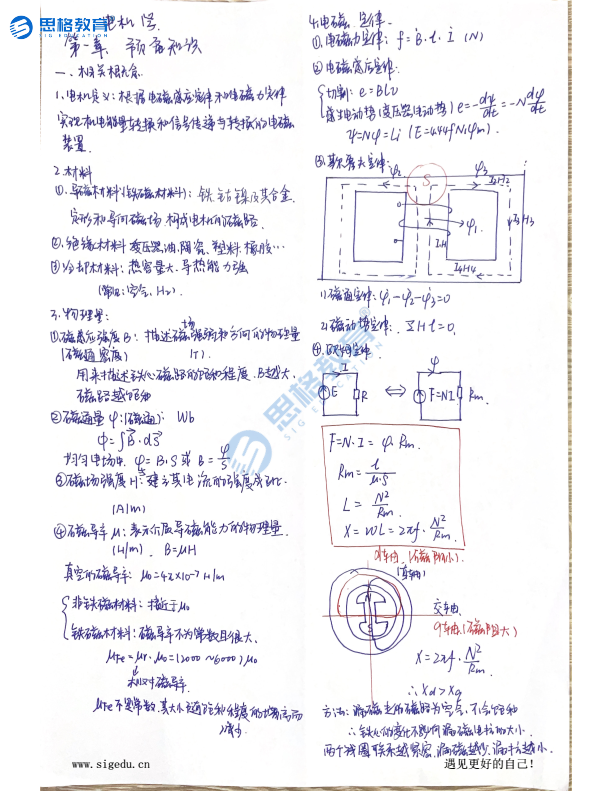 思格教育
SIG EDUCATION
电机学
第一章 预备知识
一、相关概念
1.电机定义：根据电磁感应定律和电磁力定律
实现机电能量转换和信号传递与转换的电磁
装置.
2.材料
①.导磁材料(铁磁材料)：铁钴镍及其合金
②绝缘材料 变压器油,陶瓷、塑料橡胶…
③冷却材料：热容量大.导热能力强
(常见:空气,H₂).
3.物理量:
①磁感应强度B：描述磁场强弱和方向的物理量
(磁通密度) (T).
用来描述铁心磁路的饱和程度.B越大,
磁路越饱和
②磁通量φ(磁通)：Wb
Φ=∫B·dS
均匀电场中. φ=B·S 或 B=φ/S
③磁场强度H：建立其电流的强度成正比.
(A/m)
④磁导率μ：表示介质导磁能力的物理量.
(H/m). B=μH
真空的磁导率: μ₀=4π×10-7 H/m
非铁磁材料：接近于μ₀
铁磁材料：磁导率不为常数且很大、
μFe=μr·μ₀=(2000~6000)μ₀
相对磁导率.
μFe不是常数,其大小随饱和程度的增高而
减小.
4.电磁定律.
①.电磁力定律：f=B·l·I (N)
②电磁感应定律:
切割: e=BLv
感生电动势(变压器电动势) e=-dψ/dt=-Ndφ/dt
ψ=Nφ=Li (E=4.44fN₁φm).
φ₂ S φ₃
I₂H₂
I₃H₃
φ₁.
I₄H₄
1)磁通定律:φ₁-φ₂-φ₃=0
2)磁动势定律: ΣHl=0.
④.欧姆定律.
I φ
E R ⇔ F=NI Rm.
F=N·I=φ·Rm.
Rm=l/μ·S
L=N²/Rm.
X=ωL=2πf·N²/Rm.
d轴(磁阻小).
(直轴)
N
S
交轴
q轴(磁阻大)
X=2πf·N²/Rm.
∴Xd>Xq
方法：漏磁走的磁路为空气,不会饱和
∴铁心的变化不影响漏磁电抗的大小.
两个线圈联系越紧密,漏磁越少,漏抗越小.
www.sigedu.cn
遇见更好的自己！